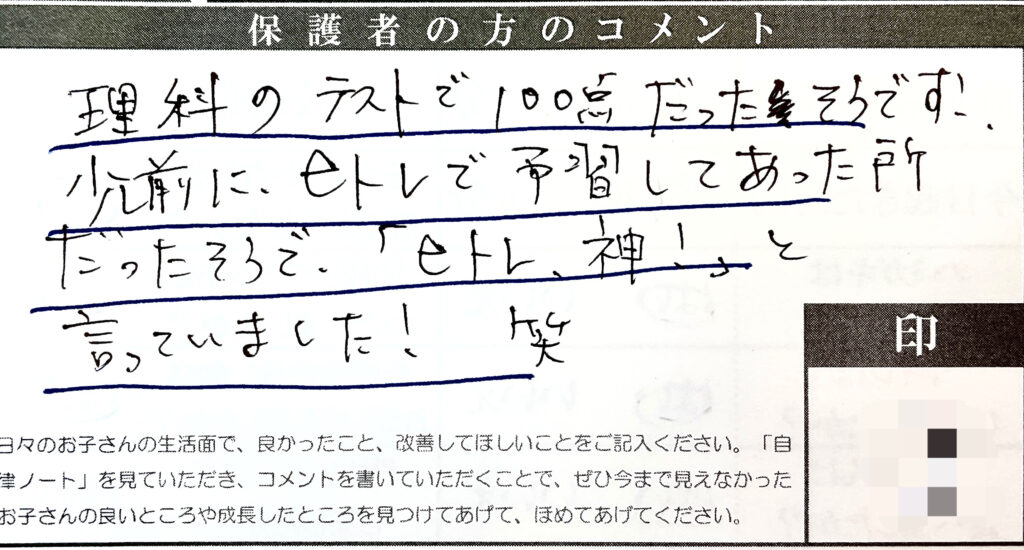 保護者の方のコメント
理科のテストで100点だったそうです!
少し前に、セトレで予習してあった所
だったそうで、「セトレ、神!」と
言っていました! 笑
印
日々のお子さんの生活面で、良かったこと、改善してほしいことをご記入ください。「自
律ノート」を見ていただき、コメントを書いていただくことで、ぜひ今まで見えなかった
お子さんの良いところや成長したところを見つけてあげて、ほめてあげてください。